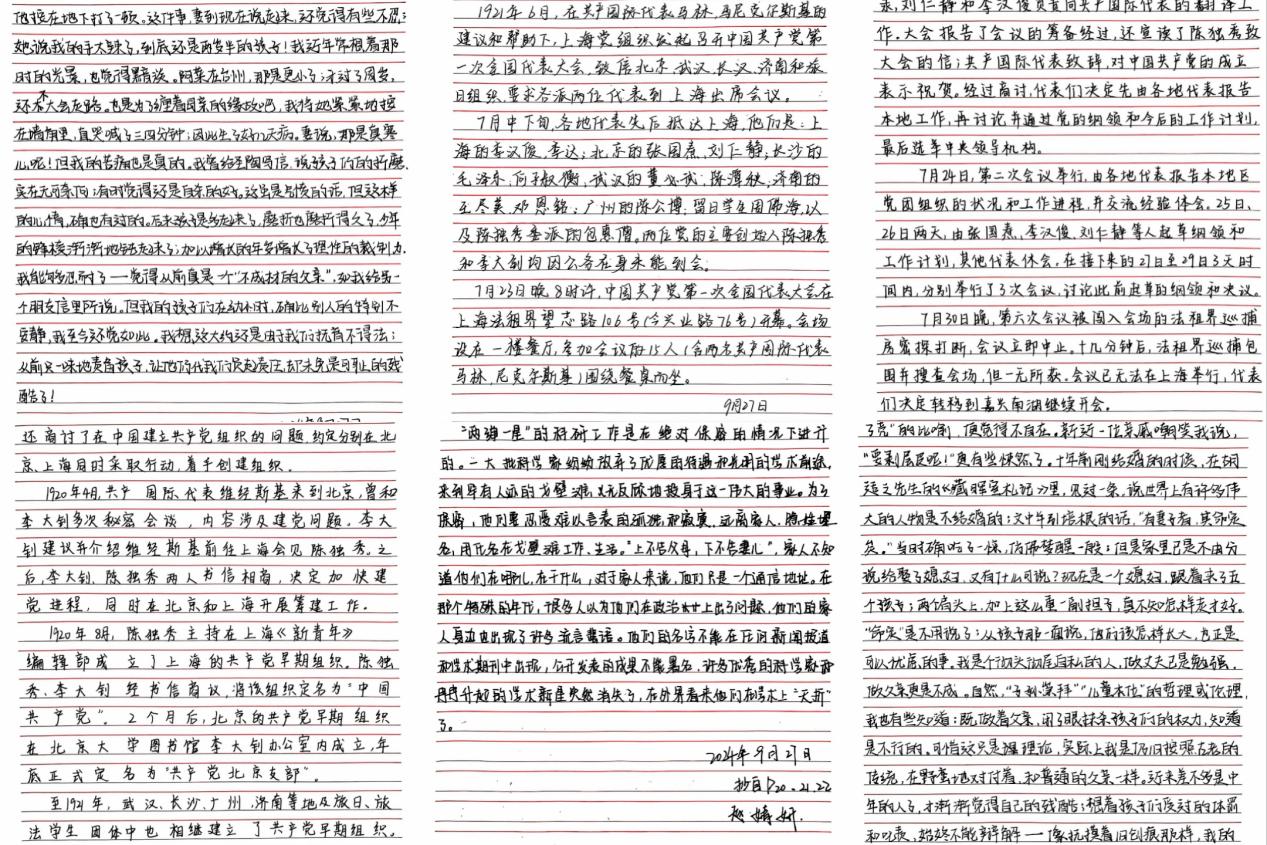 他按在地下打了一顿。这件事，妻到现在说起来，还觉得有些不忍；
她说我的手太辣了，到底还是两岁半的孩子！我近年常想着那
时的光景，也觉得黯然。阿菜在台州，那是更小了；才过了周岁，
还不大会走路。也是为了缠着母亲的缘故吧，我将她紧紧地按
在墙角里，直哭喊了三四分钟；因此生了好几天病。妻说，那时真寒
心呢！但我的苦痛也是真的。我曾给圣陶写信，说孩子们的折磨，
实在无可奈何；有时竟觉得还是自杀的好。这虽是气愤的话，但这样
的心情，确也有过的。后来孩子是多起来了，磨折也磨折得久了，少年
的锋棱渐渐地钝起来了；加以增长的年岁增长了理性的裁制力，
我能够忍耐了——觉得从前真是一个“不成材的父亲”，如我给另一
个朋友信里所说。但我的孩子们在幼小时，确比别人的特别不
安静，我至今还觉如此。我想这大约还是由于我们抚育不得法；
从前只一味地责备孩子，让他们代我们负起责任，却未免是可耻的残
酷了！
1921年6月，在共产国际代表马林、马尼克尔斯基的
建议和帮助下，上海党组织发起召开中国共产党第
一次全国代表大会，致信北京、武汉、长汉、济南和旅
日组织，要求各派两位代表到上海出席会议。
7月中下旬，各地代表先后抵达上海，他们是：上
海的李汉俊、李达；北京的张国焘、刘仁静；长沙的
毛泽东、何叔衡，武汉的董必武、陈潭秋，济南的
王尽美、邓恩铭；广州的陈公博、留日学生周佛海，以
及陈独秀委派的包惠僧。两位党的主要创始人陈独秀
和李大钊均因公务在身未能到会。
7月23日晚8时许，中国共产党第一次全国代表大会在
上海法租界望志路106号（今兴业路76号）开幕。会场
设在一楼餐厅，参加会议的15人（含两名共产国际代表
马林、尼克尔斯基）围绕餐桌而坐。
9月27日
录，刘仁静和李汉俊负责向共产国际代表的翻译工
作。大会报告了会议的筹备经过，还宣读了陈独秀致
大会的信；共产国际代表致辞，对中国共产党的成立
表示祝贺。经过商讨，代表们决定先由各地代表报告
本地工作，再讨论并通过党的纲领和今后的工作计划，
最后选举中央领导机构。
7月24日，第二次会议举行，由各地代表报告本地区
党团组织的状况和工作进程，并交流经验体会。25日、
26日两天，由张国焘、李汉俊、刘仁静等人起草纲领和
工作计划，其他代表休会，在接下来的27日至29日3天时
间内，分别举行了3次会议，讨论此前起草的纲领和决议。
7月30日晚，第六次会议被闯入会场的法租界巡捕
房密探打断，会议立即中止。十几分钟后，法租界巡捕包
围并搜查会场，但一无所获。会议已无法在上海举行，代表
们决定转移到嘉兴南湖继续开会。
还商讨了在中国建立共产党组织的问题，约定分别在北
京、上海同时采取行动，着手创建组织。
1920年4月，共产国际代表维经斯基来到北京，曾和
李大钊多次秘密会谈，内容涉及建党问题。李大
钊建议并介绍维经斯基前往上海会见陈独秀。之
后，李大钊、陈独秀两人书信相商，决定加快建
党进程，同时在北京和上海开展筹建工作。
1920年8月，陈独秀主持在上海《新青年》
编辑部成立了上海的共产党早期组织。陈独
秀、李大钊经书信商议，将该组织定名为“中国
共产党”。2个月后，北京的共产党早期组织
在北京大学图书馆李大钊办公室内成立，年
底正式定名为“共产党北京支部”。
至1921年，武汉、长沙、广州、济南等地及旅日、旅
法学生团体中也相继建立了共产党早期组织。
“两弹一星”的科研工作是在绝对保密的情况下进行
的。一大批科学家纷纷放弃了优厚的待遇和光明的学术前途，
来到罕有人迹的戈壁滩，义无反顾地投身于这一伟大的事业。为了
保密，他们要忍受难以言表的孤独和寂寞，远离家人，隐姓埋
名，用化名在戈壁滩工作、生活。“上不告父母，下不告妻儿”，家人不知
道他们在哪儿，在干什么，对于家人来说，他们只是一个通信地址。在
那个特殊的年代，很多人以为他们在政治上出了问题，他们的家
人身边也出现了许多流言蜚语。他们的名字不能在任何新闻报道
和学术期刊中出现，公开发表的成果不能署名，许多优秀的科学家和
冉冉升起的学术新星突然消失了，在外界看来他们在学术上“夭折”
了。
2024年9月27日
抄自P20、21、22
赵婧妍
了壳”的比喻，便觉得不自在。新近一位亲戚嘲笑我说，
“要剥层皮呢！”更有些悚然了。十年前刚结婚的时候，在胡
适之先生的《藏晖室札记》里，见过一条，说世界上有许多伟
大的人物是不结婚的；文中并引培根的话，“有妻子者，其命定
矣。”当时确吃了一惊，仿佛梦醒一般；但是家里已是不由分
说给娶了媳妇，又有什么可说？现在是一个媳妇，跟着来了五
个孩子；两个肩头上，加上这么重一副担子，真不知怎样走才好。
“命定”是不用说了；从孩子那一面说，他们该怎样长大，也正是
可以忧虑的事。我是个彻头彻尾自私的人，做丈夫已是勉强，
做父亲更是不成。自然，“子孙崇拜”“儿童本位”的哲理或伦理，
我也有些知道；既做着父亲，闭了眼抹杀孩子们的权力，知道
是不行的。可惜这只是理论，实际上我是仍旧按照古老的
传统，在野蛮地对付着，和普通的父亲一样。近来差不多是中
年的人了，才渐渐觉得自己的残酷；想着孩子们受过的体罚
和叱责，始终不能辩解——像抚摸着旧创痕那样，我的